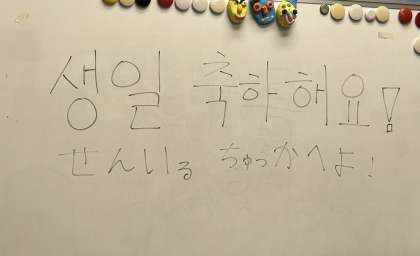 생일 축하해요!
せんいる ちゅっかへよ!